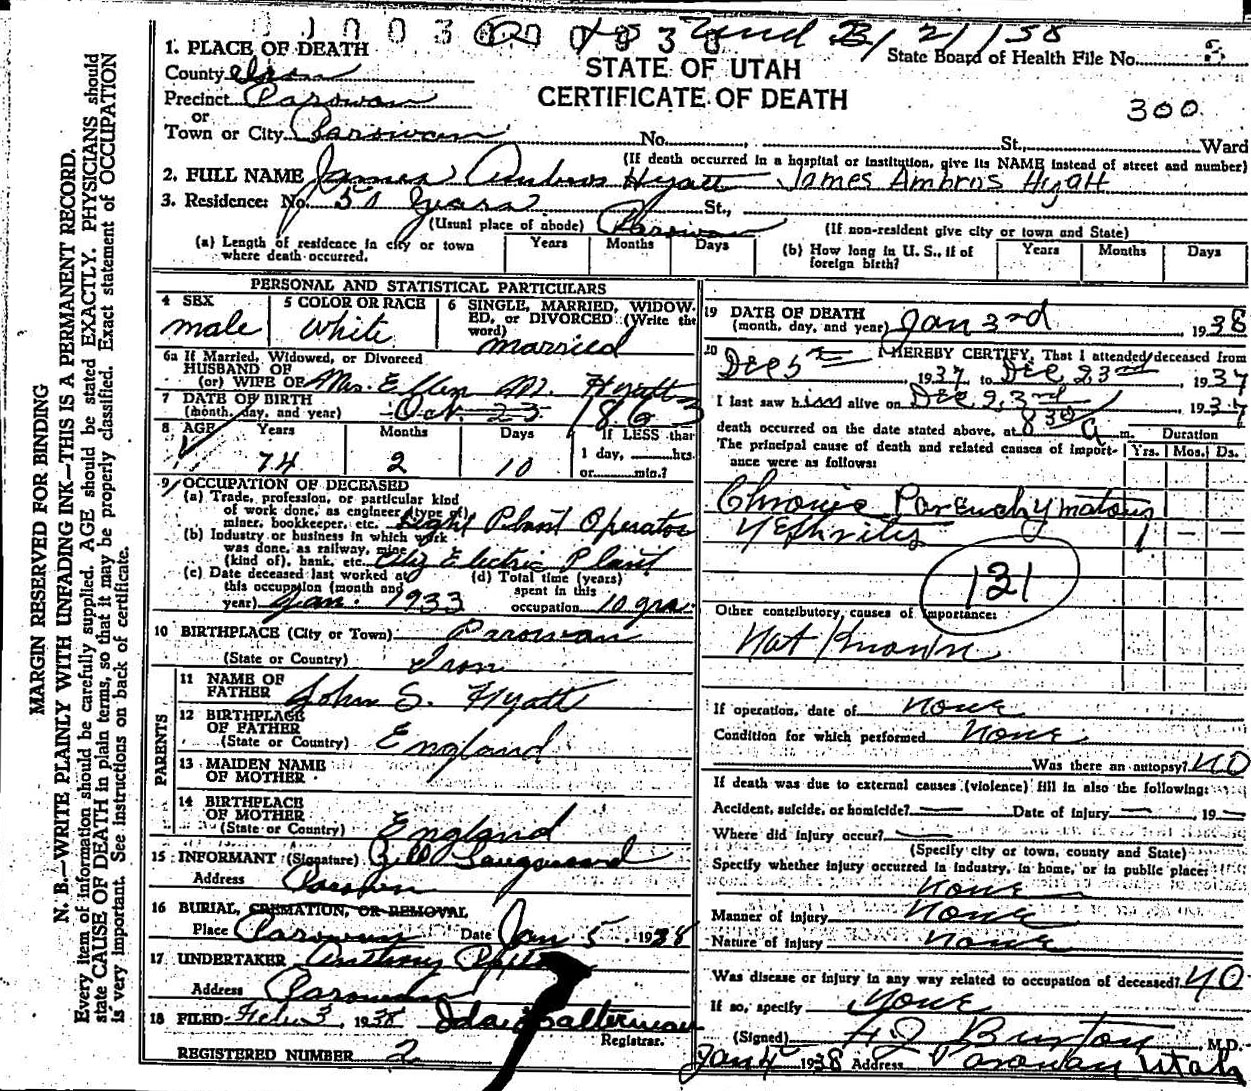 1. PLACE OF DEATH
County Iron
Precinct Parowan
or
Town or City Parowan No. , St., Ward
STATE OF UTAH
CERTIFICATE OF DEATH
State Board of Health File No. 3
300
(If death occurred in a hospital or institution, give its NAME instead of street and number)
2. FULL NAME James Ambros Hyatt James Ambros Hyatt
3. Residence: No. 50 Years St.,
(Usual place of abode) Parowan (If non-resident give city or town and State)
(a) Length of residence in city or town where death occurred. Years Months Days (b) How long in U. S., if of foreign birth? Years Months Days
MARGIN RESERVED FOR BINDING
N. B.—WRITE PLAINLY WITH UNFADING INK—THIS IS A PERMANENT RECORD.
Every item of information should be carefully supplied. AGE should be stated EXACTLY. PHYSICIANS should
state CAUSE OF DEATH in plain terms, so that it may be properly classified. Exact statement of OCCUPATION
is very important. See instructions on back of certificate.
PERSONAL AND STATISTICAL PARTICULARS
4 SEX male
5 COLOR OR RACE white
6 SINGLE, MARRIED, WIDOWED, or DIVORCED (Write the word) married
6a If Married, Widowed, or Divorced
HUSBAND OF
(or) WIFE OF Mrs. Ellen M. Hyatt
7 DATE OF BIRTH
(month, day, and year) Oct 23 1863
8 AGE Years Months Days If LESS than
1 day, hrs.
74 2 10 or min.?
9 OCCUPATION OF DECEASED
(a) Trade, profession, or particular kind
of work done, as engineer (type of)
miner, bookkeeper, etc. Light Plant Operator
(b) Industry or business in which work
was done, as railway, mine
(kind of), bank, etc. City Electric Plant
(c) Date deceased last worked at
this occupation (month and
year) Jan. 1933
(d) Total time (years)
spent in this
occupation 10 yrs.
10 BIRTHPLACE (City or Town) Parowan
(State or Country) Iron
PARENTS
11 NAME OF
FATHER John S. Hyatt
12 BIRTHPLACE
OF FATHER
(State or Country) England
13 MAIDEN NAME
OF MOTHER
14 BIRTHPLACE
OF MOTHER
(State or Country) England
15 INFORMANT (Signature) Bill
Address Parowan
16 BURIAL, CREMATION, OR REMOVAL
Place Parowan Date Jan 5, 1938
17 UNDERTAKER Anthony
Address Parowan
18 FILED Feb. 3, 1938 Ida
Registrar.
REGISTERED NUMBER 2
19 DATE OF DEATH
(month, day, and year) Jan 3rd 1938
20 I HEREBY CERTIFY, That I attended deceased from
Dec 5th, 1937 to Dec 23rd, 1937
I last saw him alive on Dec 23rd 1937
death occurred on the date stated above, at 8 30 a m. Duration
The principal cause of death and related causes of importance were as follows: Yrs. Mos. Ds.
Chronic Parenchymatous
Nephritis 1 — —
131
Other contributory causes of importance:
Not Known
If operation, date of None
Condition for which performed None
Was there an autopsy? NO
If death was due to external causes (violence) fill in also the following:
Accident, suicide, or homicide? — Date of injury —, 19—
Where did injury occur? —
(Specify city or town, county and State)
Specify whether injury occurred in industry, in home, or in public place:
None
Manner of injury None
Nature of injury None
Was disease or injury in any way related to occupation of deceased? NO
If so, specify None
(Signed) Burton, M.D.
Jan 4 1938 Address Parowan Utah